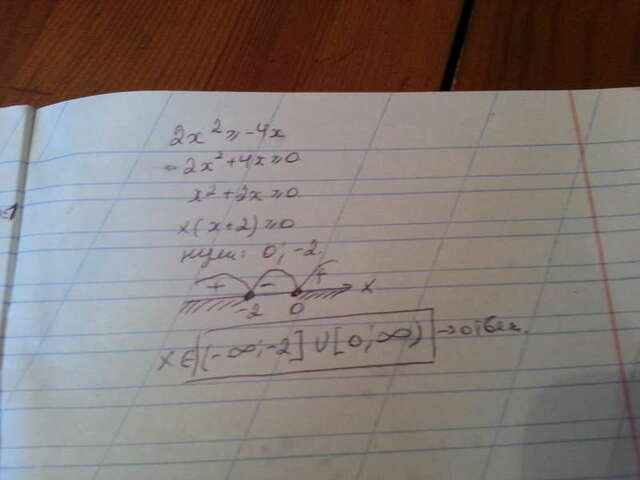 2x² ≥ -4x
2x² + 4x ≥ 0
x² + 2x ≥ 0
x(x+2) ≥ 0
нули: 0; -2.
+ - + x
-2 0
x ∈ (-∞; -2] ∪ [0; ∞) → ответ.